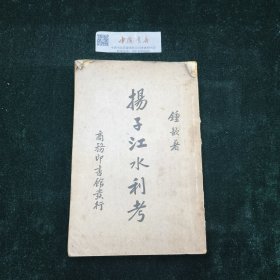 中國書店
鍾歆著
揚子江水利考
商務印書館發行